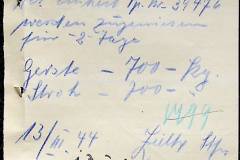 Einheit Fp. Nr. 39476
werden zugewiesen
für 2 Tage
Gerste – 700 – Kg.
Stroh – 700 –
13/III. 44